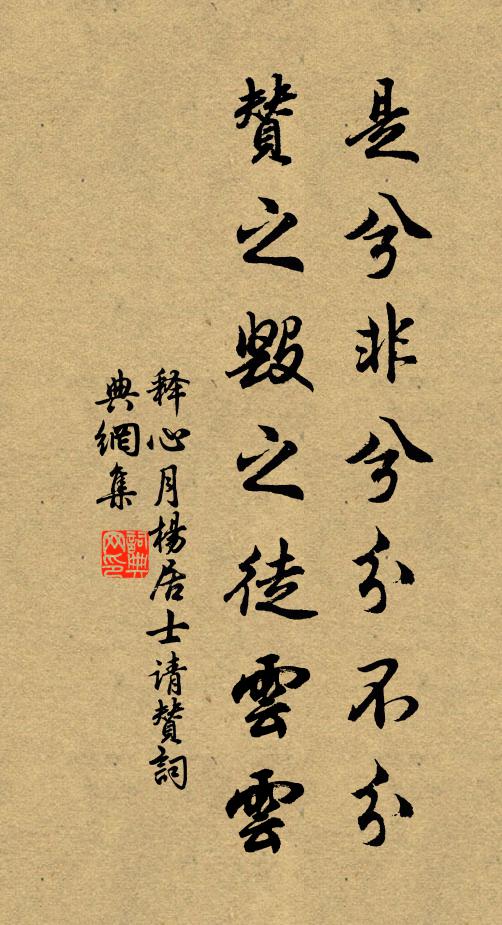 是兮非兮分不分
贊之毀之徒雲雲
释心月楊居士请贊詞
典網集
詞典网印